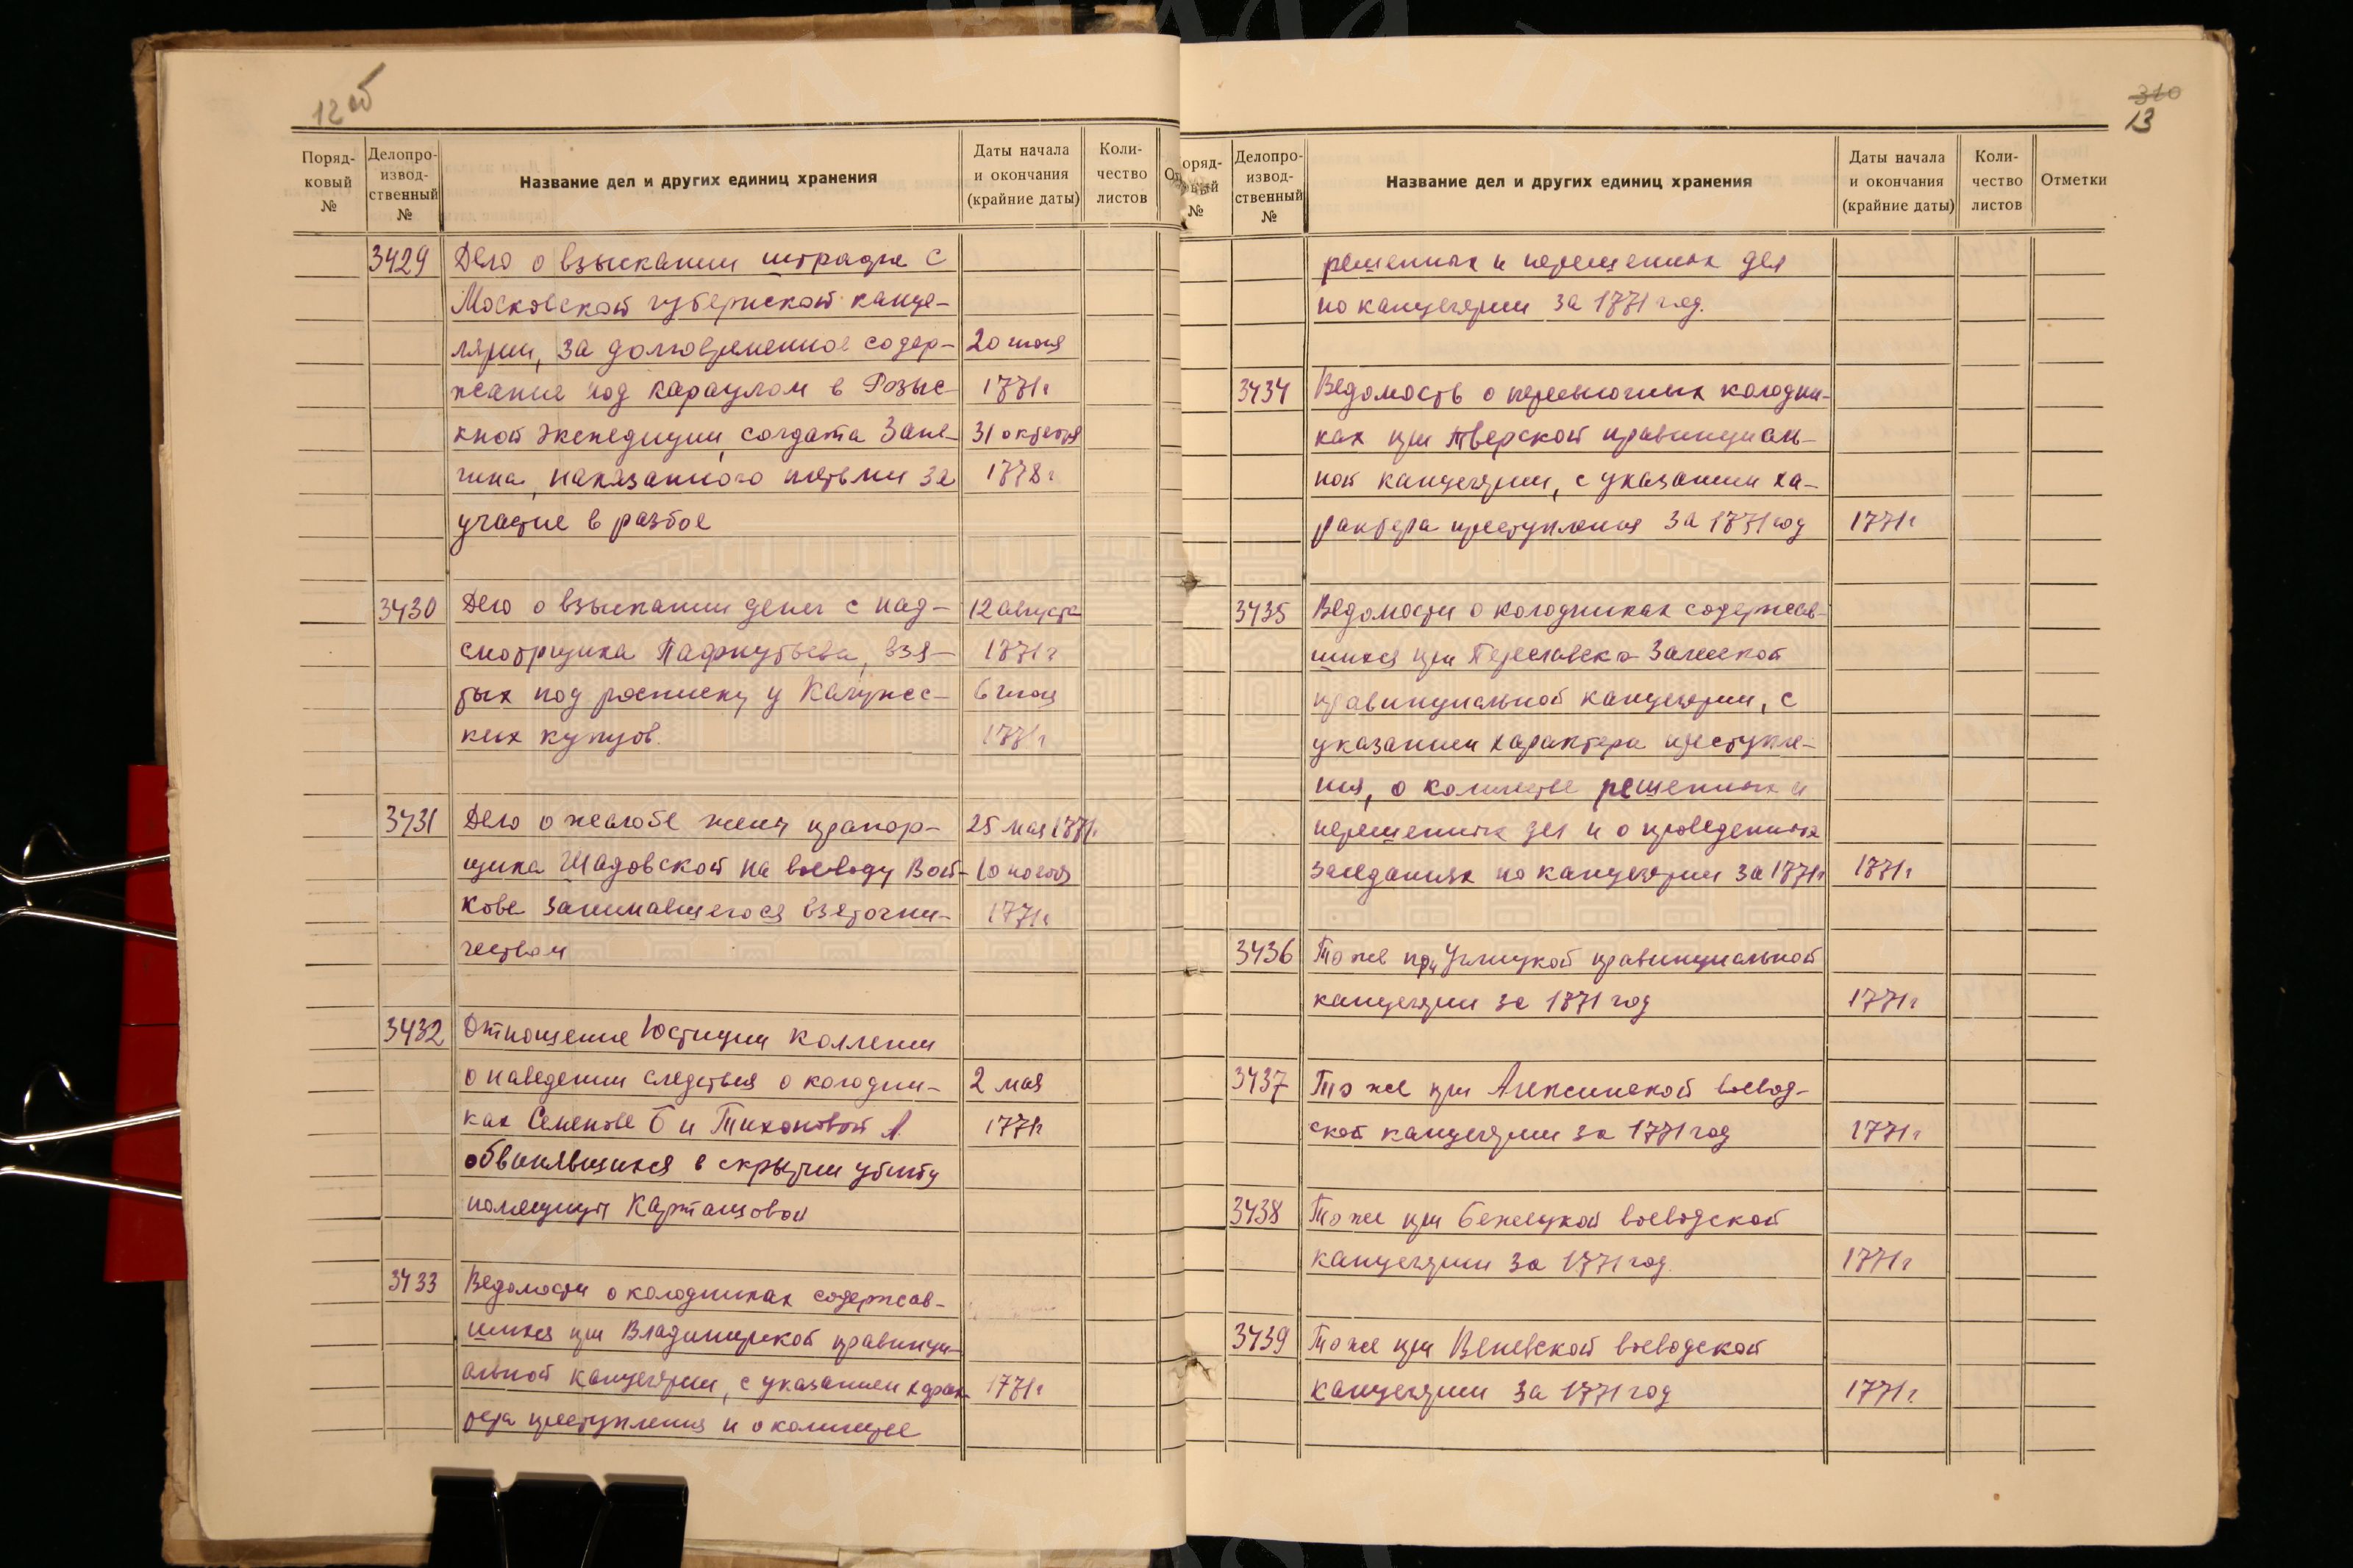 12 об
Поряд-
ковый
№
Делопро-
извод-
ственный
№
Название дел и других единиц хранения
Даты начала
и окончания
(крайние даты)
Коли-
чество
листов
3429 Дело о взыскании штрафа с
Московской губернской канце-
лярии, за долговременное содер- 20 июня
жание под караулом в Розыс- 1771г
кной экспедиции, солдата 31 октября
наказанного плетьми за 1778г
участие в разбое
3430 Дело о взыскании денег с над- 12 августа
смотрщика Пафнутьева, взя- 1771г
тых под росписку у Калужс-
ких купцов. 1771г
3431 Дело о жалобе жены прапор- 25 мая 1771г.
щика Шадовской на воеводу Вой-
кова занимавшегося взяточни- 1771г
чеством
3432 Отношение Юстиции коллегии
о наведении следствия о колодни- 2 мая
ках Семенове Б и Тихоновой А. 1771г
обвинявшихся в скрытии убийц
помещицы Карташовой
3433 Ведомости о колодниках содержав-
шихся при Владимирской правинци-
альной канцелярии, с указанием харак- 1771г
тера преступления и о количестве
310
13
Поряд-
ковый
№
Делопро-
извод-
ственный
№
Название дел и других единиц хранения
Даты начала
и окончания
(крайние даты)
Коли-
чество
листов
Отметки
решенных и нерешенных дел
по канцелярии за 1771 год.
3434 Ведомость о пересылочных колодни-
ках при Тверской правинциаль-
ной канцелярии, с указанием ха-
рактера преступления за 1771 год 1771г
3435 Ведомости о колодниках содержав-
шихся при Переславско-Залеской
правинциальной канцелярии, с
указанием характера преступле-
ния, о количестве решенных и
нерешенных дел и о проведенных
заседаниях по канцелярии за 1771г 1771г
3436 То же при Углицкой правинциальной
канцелярии за 1771 год 1771г
3437 То же при Алексинской воевод-
ской канцелярии за 1771 год 1771г
3438 То же при Бежецкой воеводской
канцелярии за 1771 год. 1771г
3439 То же при Веневской воеводской
канцелярии за 1771 год 1771г.